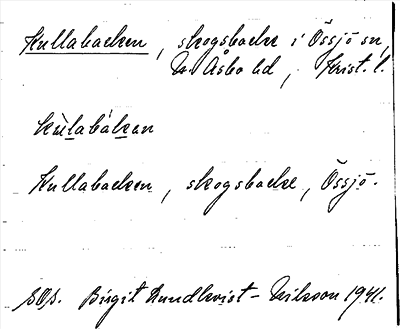 Kullabacken, skogsbacke i Össjö sn,
N. Åsbo hd, Krist. l.
kùlabákan
Kullabacken, skogsbacke, Össjö.
Birgit Lundkvist-Nilsson 1941.